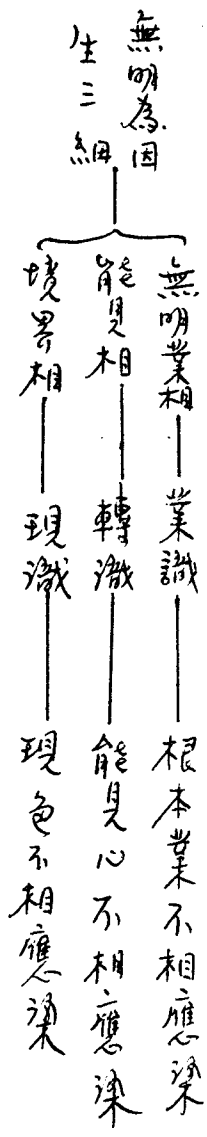 無明為因
生三細
無明業相
業識
根本業不相應染
能見相
轉識
能見心不相應染
境界相
現識
現色不相應染